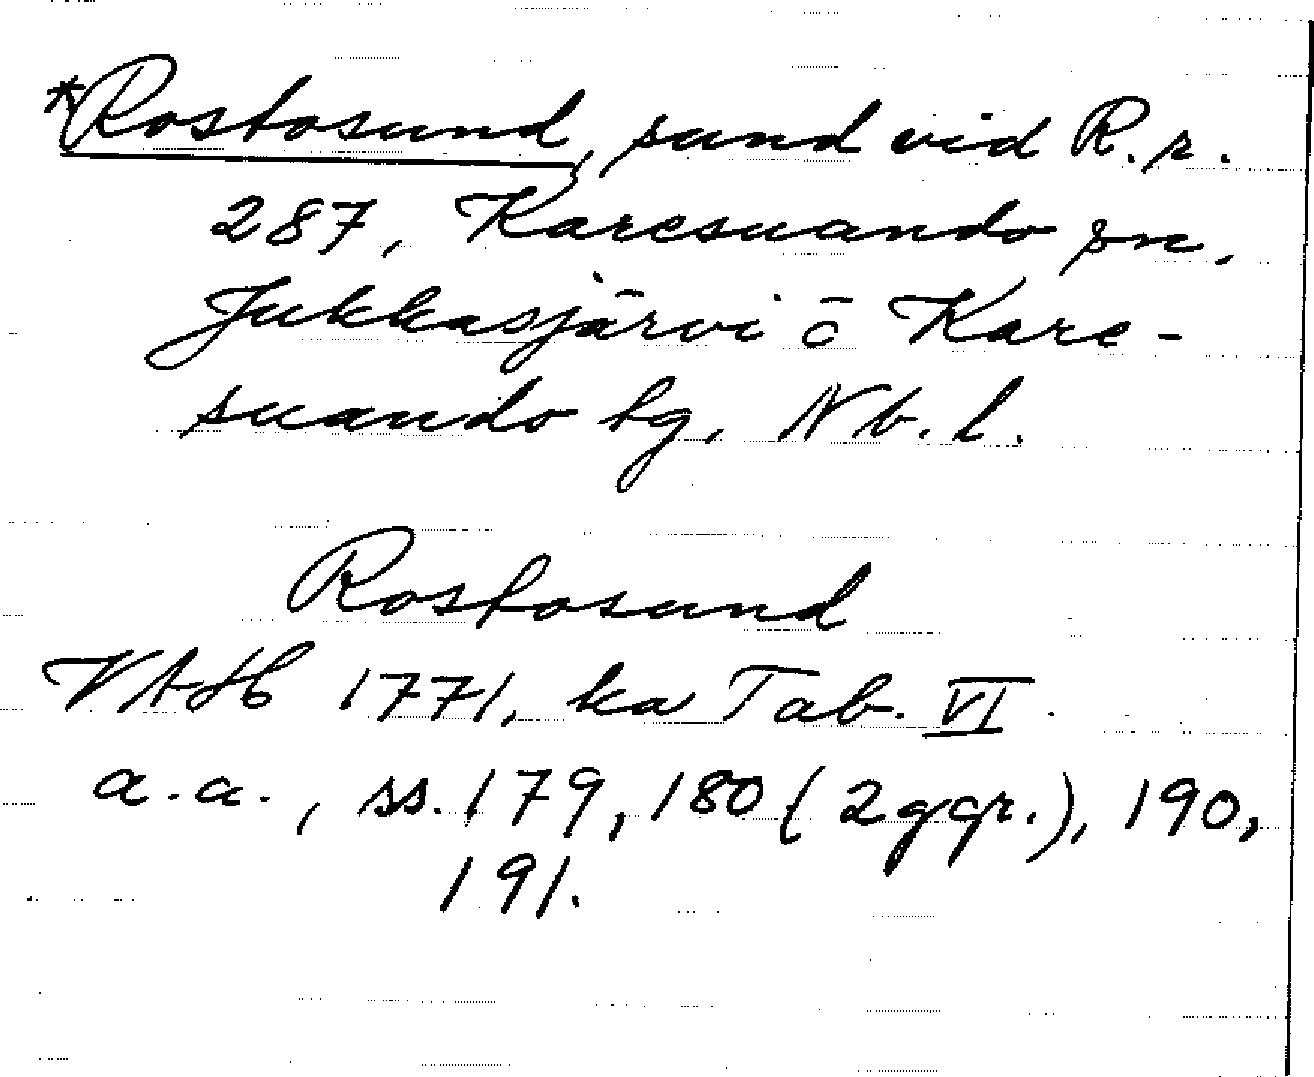 *Rostosund, sund vid R.r.
287, Karesuando sn.
Jukkasjärvi o Kare-
suando tg, Nb. l.
Rostosund
VAH 1771, ka Tab. VI.
a.a., ss. 179, 180 (2 ggr.), 190,
191.